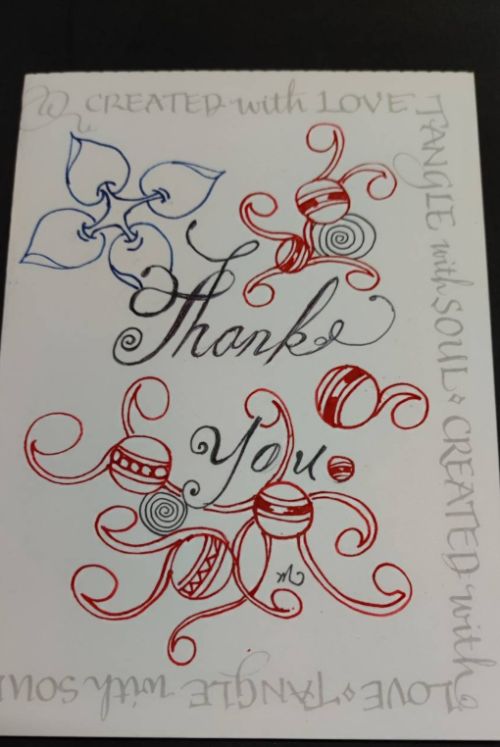 CREATED with LOVE
TANGLE with SOUL ⋄ CREATED with
LOVE ⋄ TANGLE with SOUL
Thank
You